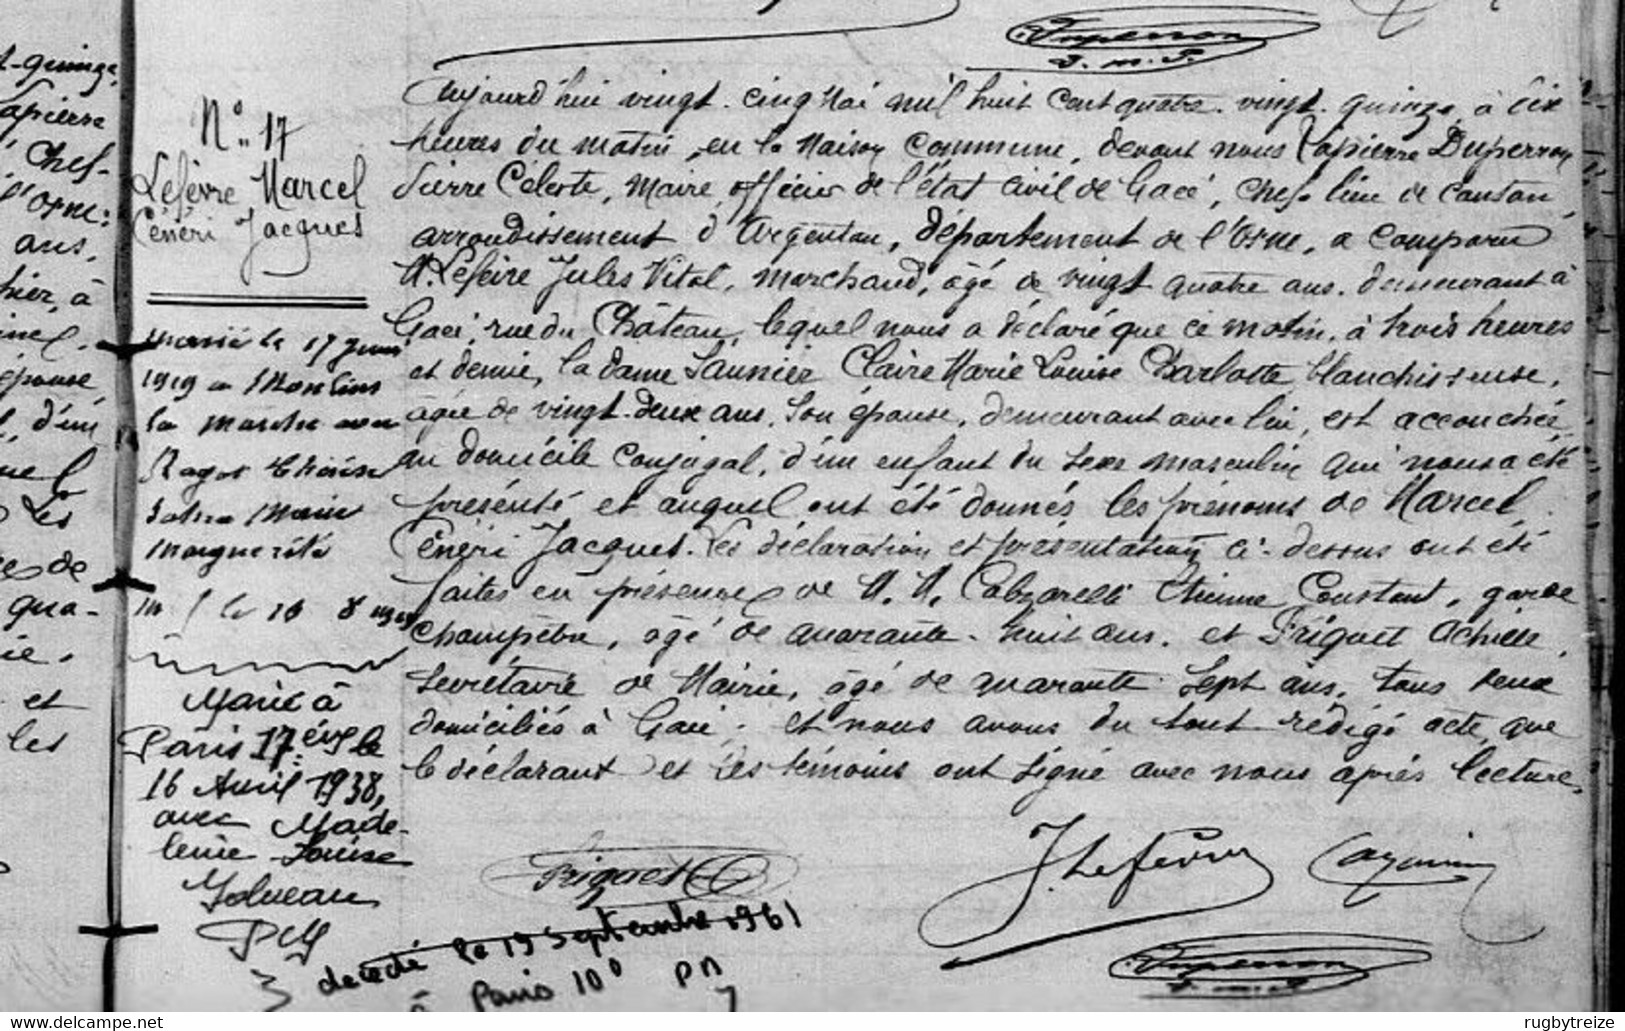 t-quinze,
Lapierre
Chef-
l'Orne:
ans,
à
épouse
d'un
Les
de
qua-
et
les
Duperron
N° 17
Lefèvre Marcel
Cénéri Jacques
Marié le 17 juin
1919 à Moulins
la Marche avec
Ragot Thérèse
Marie
Marguerite
le 18 8 1919
Marié à
Paris 17e le
16 Avril 1938,
avec Made-
leine Louise
décédé le 19 Septembre 1961
à Paris 10°
Aujourd'hui vingt-cinq Mai mil huit cent quatre-vingt-quinze, à dix
heures du matin, en la Maison Commune, devant nous Lapierre Duperron
Pierre Céleste, Maire, officier de l'état civil de Gacé, Chef-lieu de Canton,
arrondissement d'Argentan, département de l'Orne, a comparu
M. Lefèvre Jules Vital, marchand, âgé de vingt quatre ans, demeurant à
Gacé, rue du Château, lequel nous a déclaré que ce matin, à trois heures
et demie, la dame Saunier Claire Marie Louise Charlotte, blanchisseuse,
âgée de vingt-deux ans, Son épouse, demeurant avec lui, est accouchée,
au domicile conjugal, d'un enfant du sexe masculin qui nous a été
présenté et auquel ont été donnés les prénoms de Marcel
Cénéri Jacques. Les déclaration et présentation ci-dessus ont été
faites en présence de M. M. Etienne Constant, garde
Champêtre, âgé de quarante-huit ans, et Friquet Achille,
Secrétaire de Mairie, âgé de quarante sept ans, tous deux
domiciliés à Gacé; et nous avons du tout rédigé acte, que
le déclarant et les témoins ont signé avec nous après lecture.
Friquet
J. Lefèvre
Duperron
rugbytreize